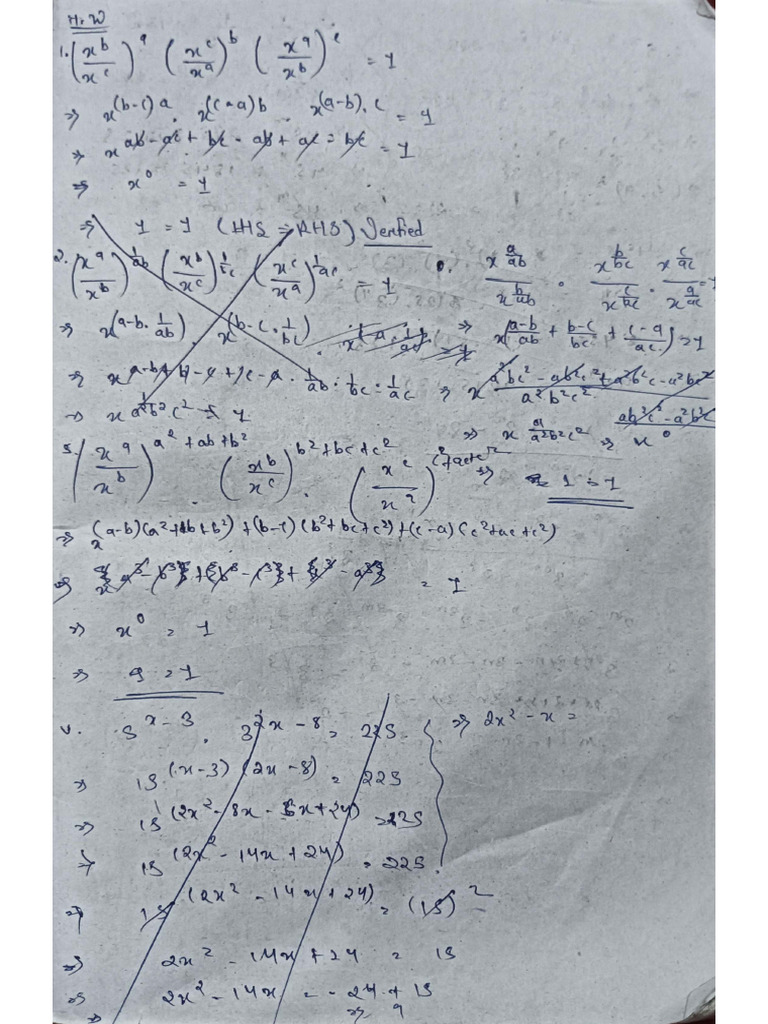 H.W
1. (x^b/x^c)^a (x^c/x^a)^b (x^a/x^b)^c = 1
⇒ x^(b-c)a . x^(c-a)b . x^(a-b).c = 1
⇒ x^ab-ac+bc-ab+ac-bc = 1
⇒ x^0 = 1
⇒ 1 = 1 (LHS = RHS) Verified
2. (x^a/x^b)^1/ab (x^b/x^c)^1/bc (x^c/x^a)^1/ac = 1
⇒ x^(a-b.1/ab) . x^(b-c.1/bc)
⇒ x^a-b+b-c+c-a . 1/ab . 1/bc . 1/ac
⇒ x a²b²c² = 1
x^a/ab / x^b/ab . x^b/bc / x^c/bc . x^c/ac / x^a/ac = 1
⇒ x^(a-b/ab + b-c/bc + c-a/ac) = 1
⇒ x^a²bc²-ab²c²+a²b²c-a²bc²+ab²c²-a²b²c / a²b²c²
⇒ x^0/a²b²c² ⇒ x^0
⇒ 1 = 1
3. (x^a/x^b)^a²+ab+b² (x^b/x^c)^b²+bc+c² . (x^c/x^a)^c²+ac+a²
⇒ x^(a-b)(a²+ab+b²)+(b-c)(b²+bc+c²)+(c-a)(c²+ac+c²)
⇒ x^{a³-b³}+{b³-c³}+{c³-a³} = 1
⇒ x^0 = 1
⇒ 1 = 1
5^x-3 . 3^2x-8 = 225 ⇒ 2x² - x =
⇒ 15^(x-3)(2x-8) = 225
⇒ 15^(2x²-8x-6x+24) = 225
⇒ 15^(2x²-14x+24) = 225.
⇒ 15^(2x²-14x+24) = (15)²
⇒ 2x² - 14x + 24 = 15
⇒ 2x² - 14x = -24 + 15
⇒ 9